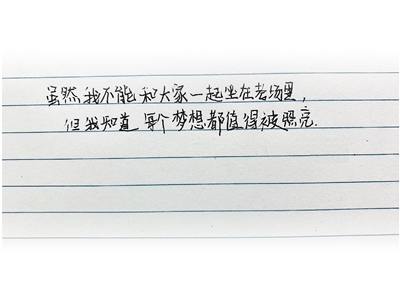 虽然我不能和大家一起坐在考场里，
但我知道每个梦想都值得被照亮.